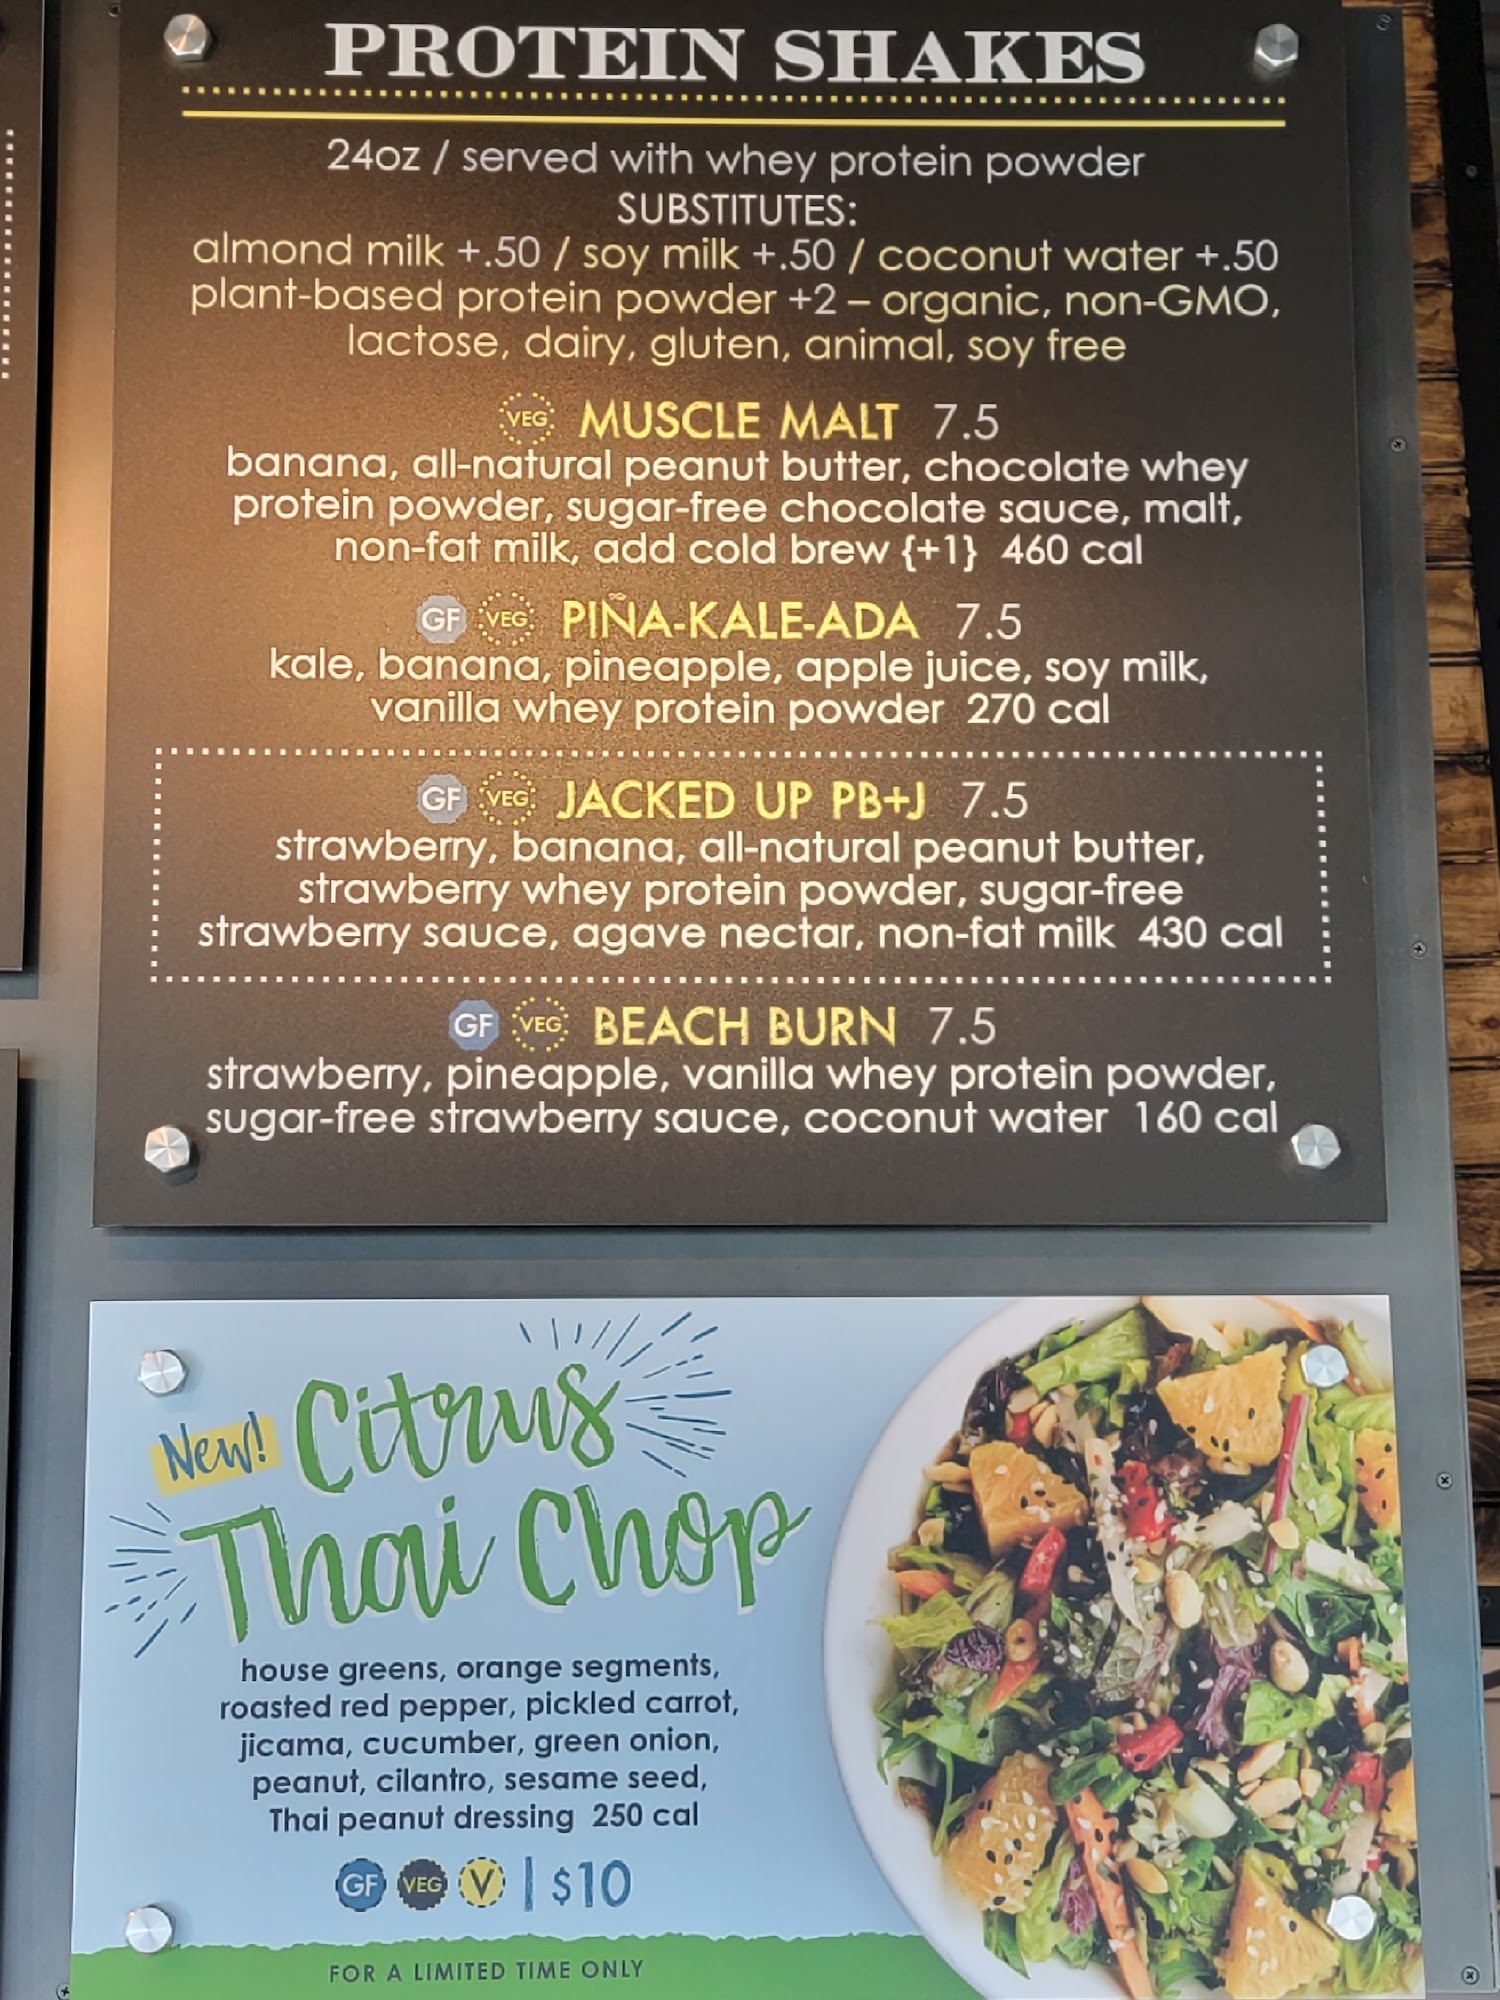 PROTEIN SHAKES
24oz / served with whey protein powder
SUBSTITUTES:
almond milk +.50 / soy milk +.50 / coconut water +.50
plant-based protein powder +2 – organic, non-GMO,
lactose, dairy, gluten, animal, soy free
VEG MUSCLE MALT 7.5
banana, all-natural peanut butter, chocolate whey
protein powder, sugar-free chocolate sauce, malt,
non-fat milk, add cold brew {+1} 460 cal
GF VEG PIÑA-KALE-ADA 7.5
kale, banana, pineapple, apple juice, soy milk,
vanilla whey protein powder 270 cal
GF VEG JACKED UP PB+J 7.5
strawberry, banana, all-natural peanut butter,
strawberry whey protein powder, sugar-free
strawberry sauce, agave nectar, non-fat milk 430 cal
GF VEG BEACH BURN 7.5
strawberry, pineapple, vanilla whey protein powder,
sugar-free strawberry sauce, coconut water 160 cal
New! Citrus
Thai Chop
house greens, orange segments,
roasted red pepper, pickled carrot,
jicama, cucumber, green onion,
peanut, cilantro, sesame seed,
Thai peanut dressing 250 cal
GF VEG V | $10
FOR A LIMITED TIME ONLY